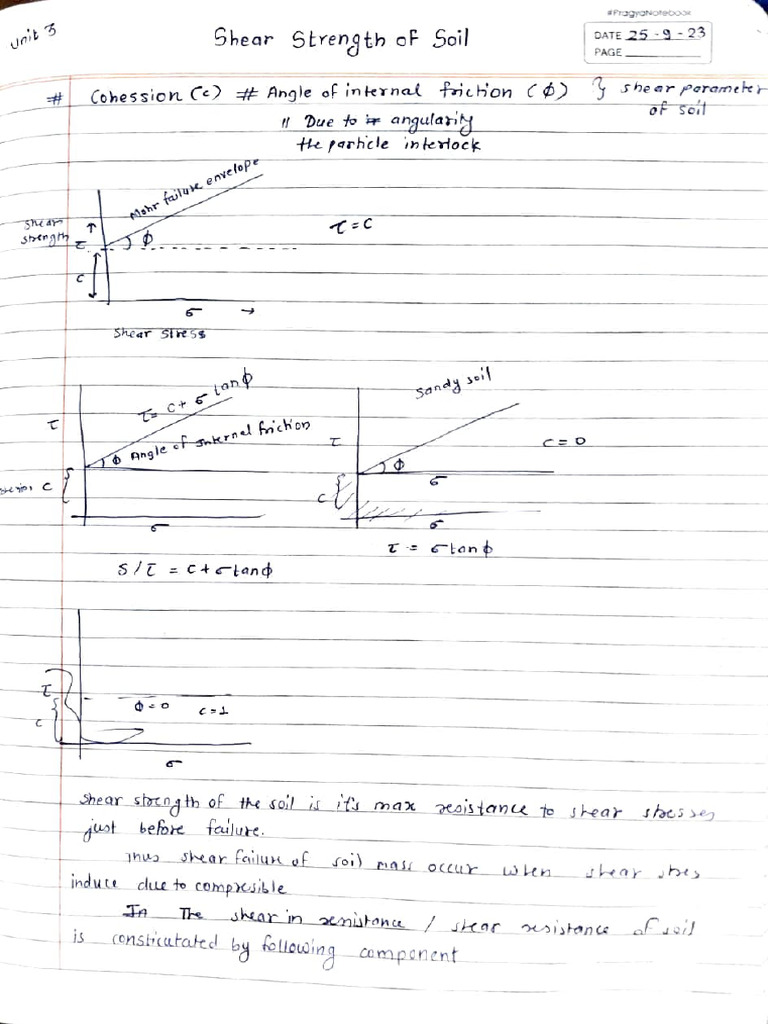 #PragyaNotebook
Unit 3
Shear Strength of Soil
DATE 25-9-23
PAGE
# Cohession (c) # Angle of internal friction (ϕ) } shear parameter
of soil
11 Due to angularity
the particle interlock
Mohr failure envelope
Shear
strength
τ
ϕ
τ = c
c
σ →
Shear stress
τ = c + σ tanϕ
τ
ϕ Angle of internal friction
c
σ
Sandy soil
τ
ϕ
c = 0
σ
c
σ
τ = σ tanϕ
S/τ = c + σ tanϕ
τ
ϕ = 0 c = 1
c
σ
Shear strength of the soil is it's max resistance to shear stresses
just before failure.
Thus shear failure of soil mass occur when shear stres
induce due to compresible
The shear in resistance / shear resistance of soil
is consticutated by following component